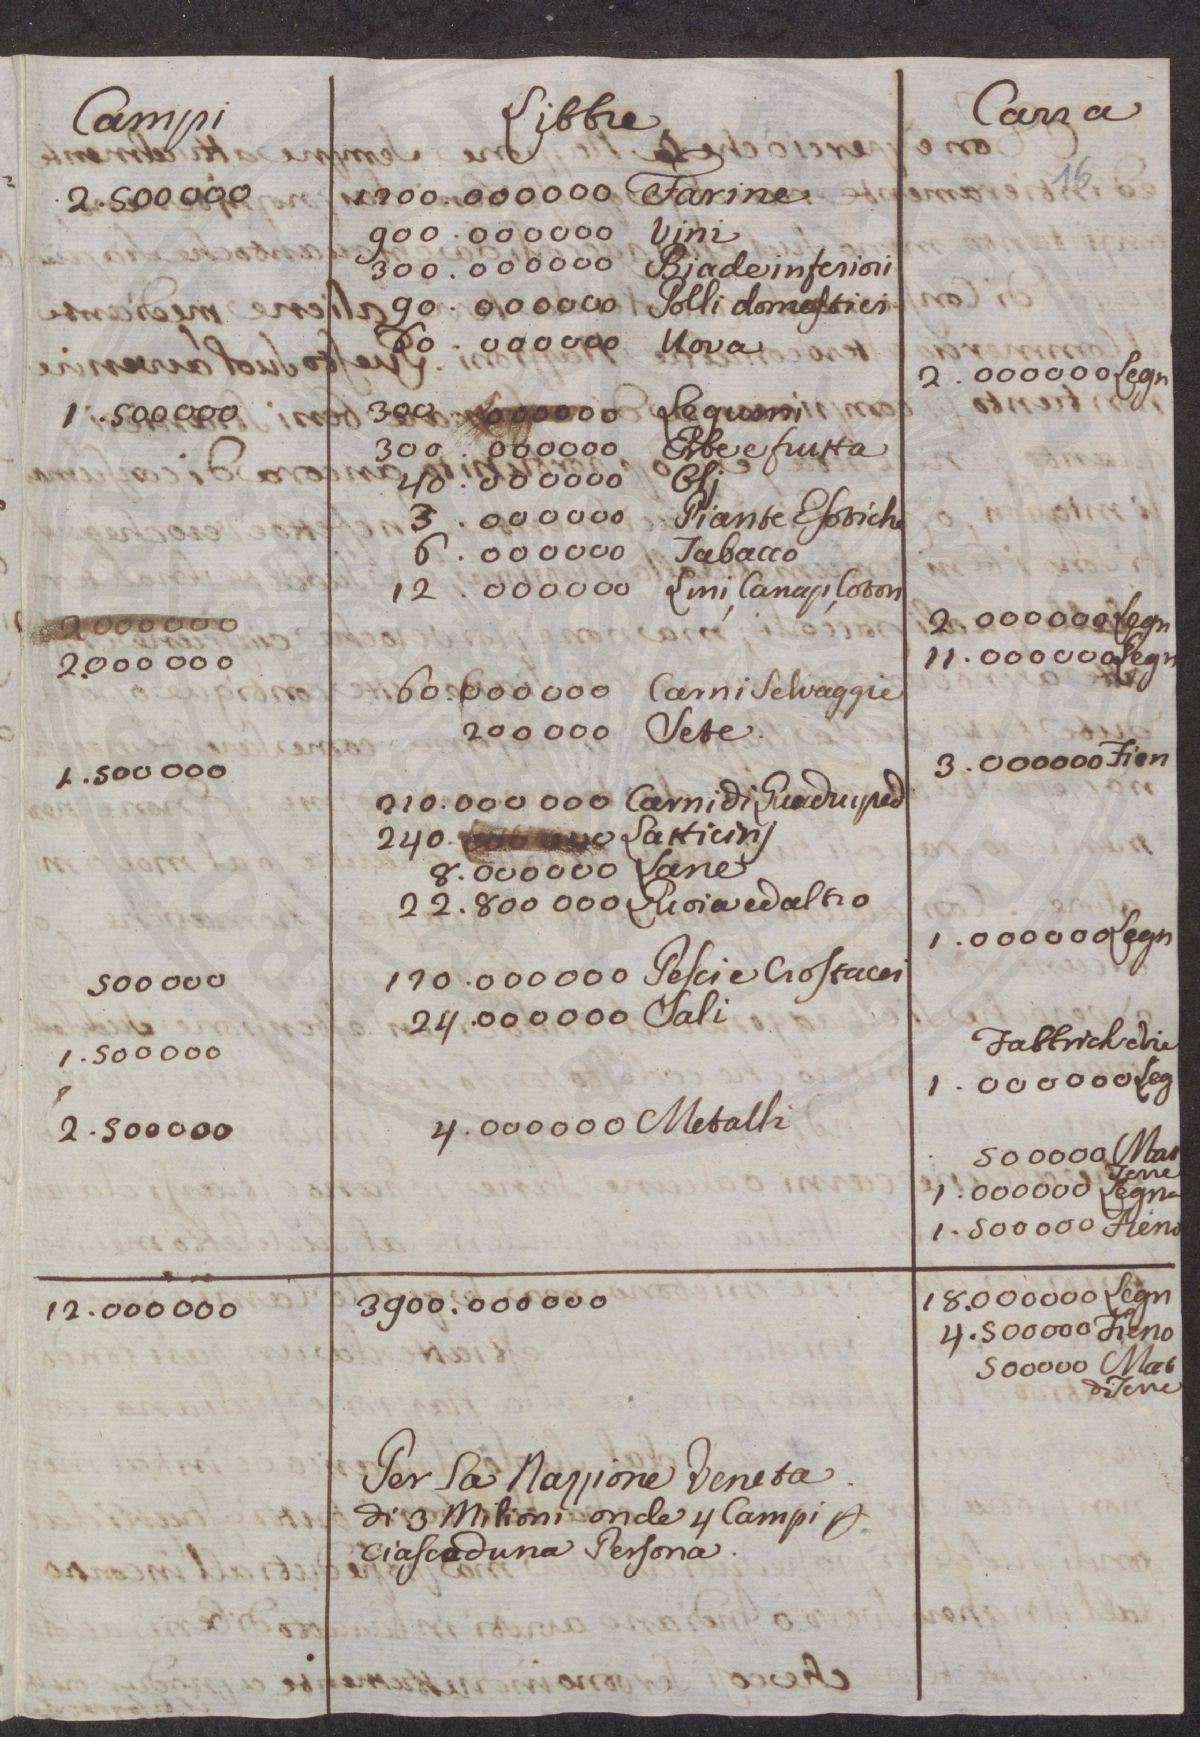 Campi Libbre Carra
16
2.500000 1200.000000 Farine
900.000000 Vini
300.000000 Biade inferiori
90.000000 Polli domestici
60.000000 Uova
2.000000 Legn
1.500000 300 000000 Legumi
300.000000 Erbe e frutta
40.000000 Olj
3.000000 Piante Esotiche
6.000000 Tabacco
12.000000 Lini, Canapi, Coton
2000000 2.000000 Legn
2.000000 11.000000 Legn
60.000000 Carni Selvaggie
200000 Sete.
1.500000 3.000000 Fien
210.000000 Carni di Quadruped
240.000000 Latticinj
8.000000 Lane
22.800000 Cuoia ed altro
1.000000 Legn
500000 120.000000 Pesci e Crostacei
24.000000 Sali
1.500000
1.000000 Leg
2.500000 4.000000 Metalli
500000 Mat
Terre
1.000000 Legna
1.500000 Fieno
12.000000 3900.000000 18.000000 Legn
4.500000 Fieno
500000 Mat
di Terre
Per La Nazione Veneta
di 3 Milioni onde 4 Campi p.
ciascaduna Persona.